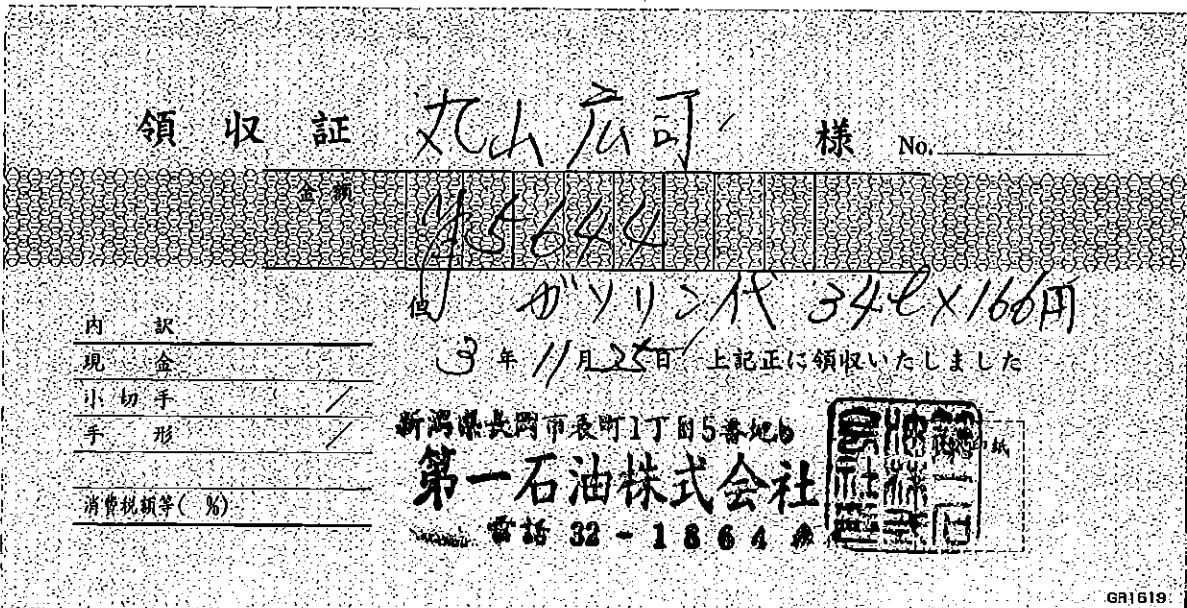 領収証 丸山広司 様 No.
金額 ¥5644
但 ガソリン代 34ℓ×166円
内訳
3年11月25日 上記正に領収いたしました
現金
小切手
手形
新潟県長岡市表町1丁目5番地6
第一石油株式会社
消費税額等( %)
電話 32-1864
GR1619